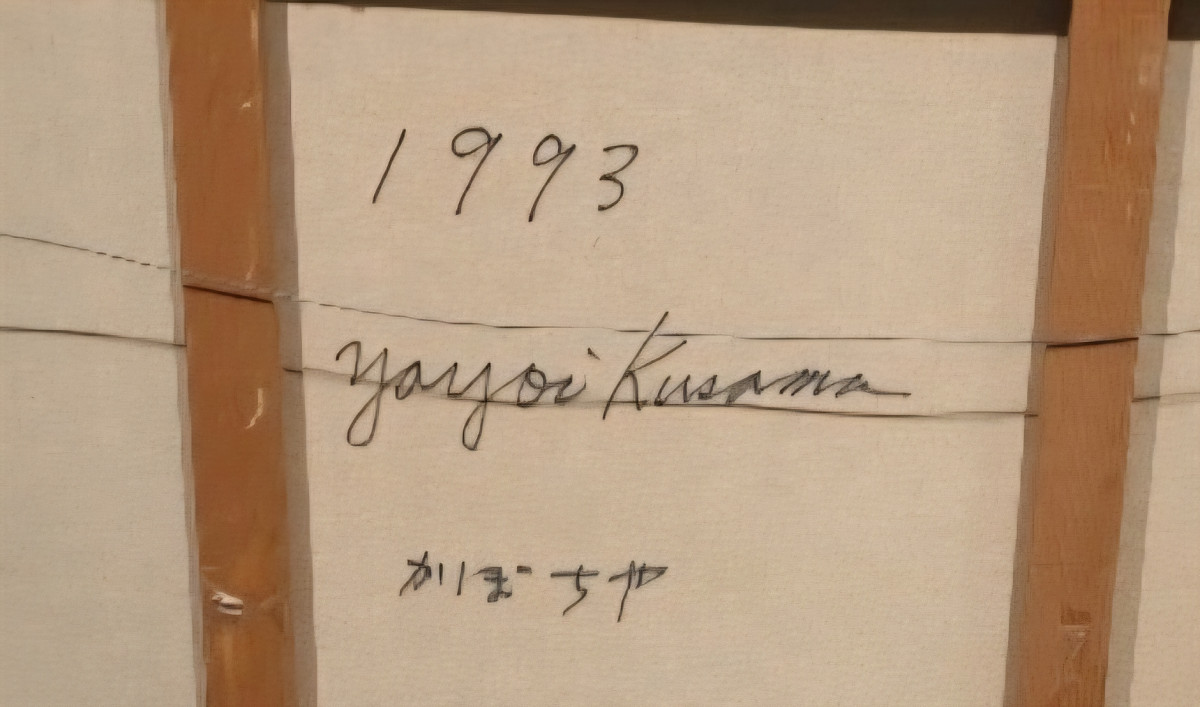 1993
Yayoi Kusama
かぼちや